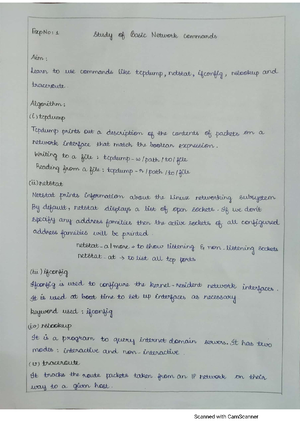 Exp No: 1
Study of Basic Network commands
Aim:
Learn to use commands like tcpdump, netstat, ifconfig, nslookup and
traceroute
Algorithm:
(i) tcpdump
Tcpdump prints out a description of the contents of packets on a
network interface that match the boolean expression.
Writing to a file : tcpdump -w /path/to/file
Reading from a file : tcpdump -r /path/to/file
(ii) netstat
Netstat prints information about the linux networking subsystem
By default, netstat displays a list of open sockets. If we don't
specify any address families then the active sockets of all configured
address families will be printed
netstat -a | more → to show listening & non listening sockets
netstat -at → to list all tcp ports
(iii) ifconfig
Ifconfig is used to configure the kernel-resident network interfaces.
It is used at boot time to set up interfaces as necessary
keyword used : ifconfig
(iv) nslookup
It is a program to query internet domain servers. It has two
modes : interactive and non-interactive
(v) traceroute
It tracks the route packets taken from an IP network on their
way to a given host.
Scanned with CamScanner